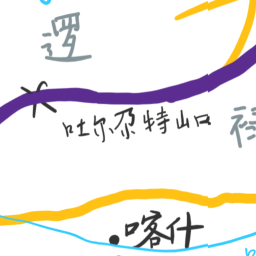 逻
吐尔尕特山口
喀什